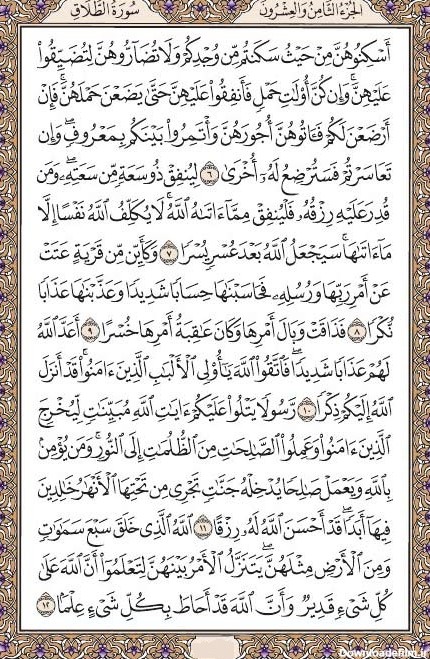 الجزء الثامن والعشرون
سورة الطلاق
أَسْكِنُوهُنَّ مِنْ حَيْثُ سَكَنتُم مِّن وُجْدِكُمْ وَلَا تُضَآرُّوهُنَّ لِتُضَيِّقُوا۟
عَلَيْهِنَّ ۚ وَإِن كُنَّ أُو۟لَـٰتِ حَمْلٍ فَأَنفِقُوا۟ عَلَيْهِنَّ حَتَّىٰ يَضَعْنَ حَمْلَهُنَّ ۚ فَإِنْ
أَرْضَعْنَ لَكُمْ فَـَٔاتُوهُنَّ أُجُورَهُنَّ ۖ وَأْتَمِرُوا۟ بَيْنَكُم بِمَعْرُوفٍ ۖ وَإِن
تَعَاسَرْتُمْ فَسَتُرْضِعُ لَهُۥٓ أُخْرَىٰ ٦ لِيُنفِقْ ذُو سَعَةٍ مِّن سَعَتِهِۦ ۖ وَمَن
قُدِرَ عَلَيْهِ رِزْقُهُۥ فَلْيُنفِقْ مِمَّآ ءَاتَىٰهُ ٱللَّهُ ۚ لَا يُكَلِّفُ ٱللَّهُ نَفْسًا إِلَّا
مَآ ءَاتَىٰهَا ۚ سَيَجْعَلُ ٱللَّهُ بَعْدَ عُسْرٍ يُسْرًا ٧ وَكَأَيِّن مِّن قَرْيَةٍ عَتَتْ
عَنْ أَمْرِ رَبِّهَا وَرُسُلِهِۦ فَحَاسَبْنَـٰهَا حِسَابًا شَدِيدًا وَعَذَّبْنَـٰهَا عَذَابًا
نُّكْرًا ٨ فَذَاقَتْ وَبَالَ أَمْرِهَا وَكَانَ عَـٰقِبَةُ أَمْرِهَا خُسْرًا ٩ أَعَدَّ ٱللَّهُ
لَهُمْ عَذَابًا شَدِيدًا ۖ فَٱتَّقُوا۟ ٱللَّهَ يَـٰٓأُو۟لِى ٱلْأَلْبَـٰبِ ٱلَّذِينَ ءَامَنُوا۟ ۚ قَدْ أَنزَلَ
ٱللَّهُ إِلَيْكُمْ ذِكْرًا ١٠ رَّسُولًا يَتْلُوا۟ عَلَيْكُمْ ءَايَـٰتِ ٱللَّهِ مُبَيِّنَـٰتٍ لِّيُخْرِجَ
ٱلَّذِينَ ءَامَنُوا۟ وَعَمِلُوا۟ ٱلصَّـٰلِحَـٰتِ مِنَ ٱلظُّلُمَـٰتِ إِلَى ٱلنُّورِ ۚ وَمَن يُؤْمِنۢ
بِٱللَّهِ وَيَعْمَلْ صَـٰلِحًا يُدْخِلْهُ جَنَّـٰتٍ تَجْرِى مِن تَحْتِهَا ٱلْأَنْهَـٰرُ خَـٰلِدِينَ
فِيهَآ أَبَدًا ۖ قَدْ أَحْسَنَ ٱللَّهُ لَهُۥ رِزْقًا ١١ ٱللَّهُ ٱلَّذِى خَلَقَ سَبْعَ سَمَـٰوَٰتٍ
وَمِنَ ٱلْأَرْضِ مِثْلَهُنَّ ۖ يَتَنَزَّلُ ٱلْأَمْرُ بَيْنَهُنَّ لِتَعْلَمُوٓا۟ أَنَّ ٱللَّهَ عَلَىٰ
كُلِّ شَىْءٍ قَدِيرٌ وَأَنَّ ٱللَّهَ قَدْ أَحَاطَ بِكُلِّ شَىْءٍ عِلْمًۢا ١٢
Downloadefilm.ir